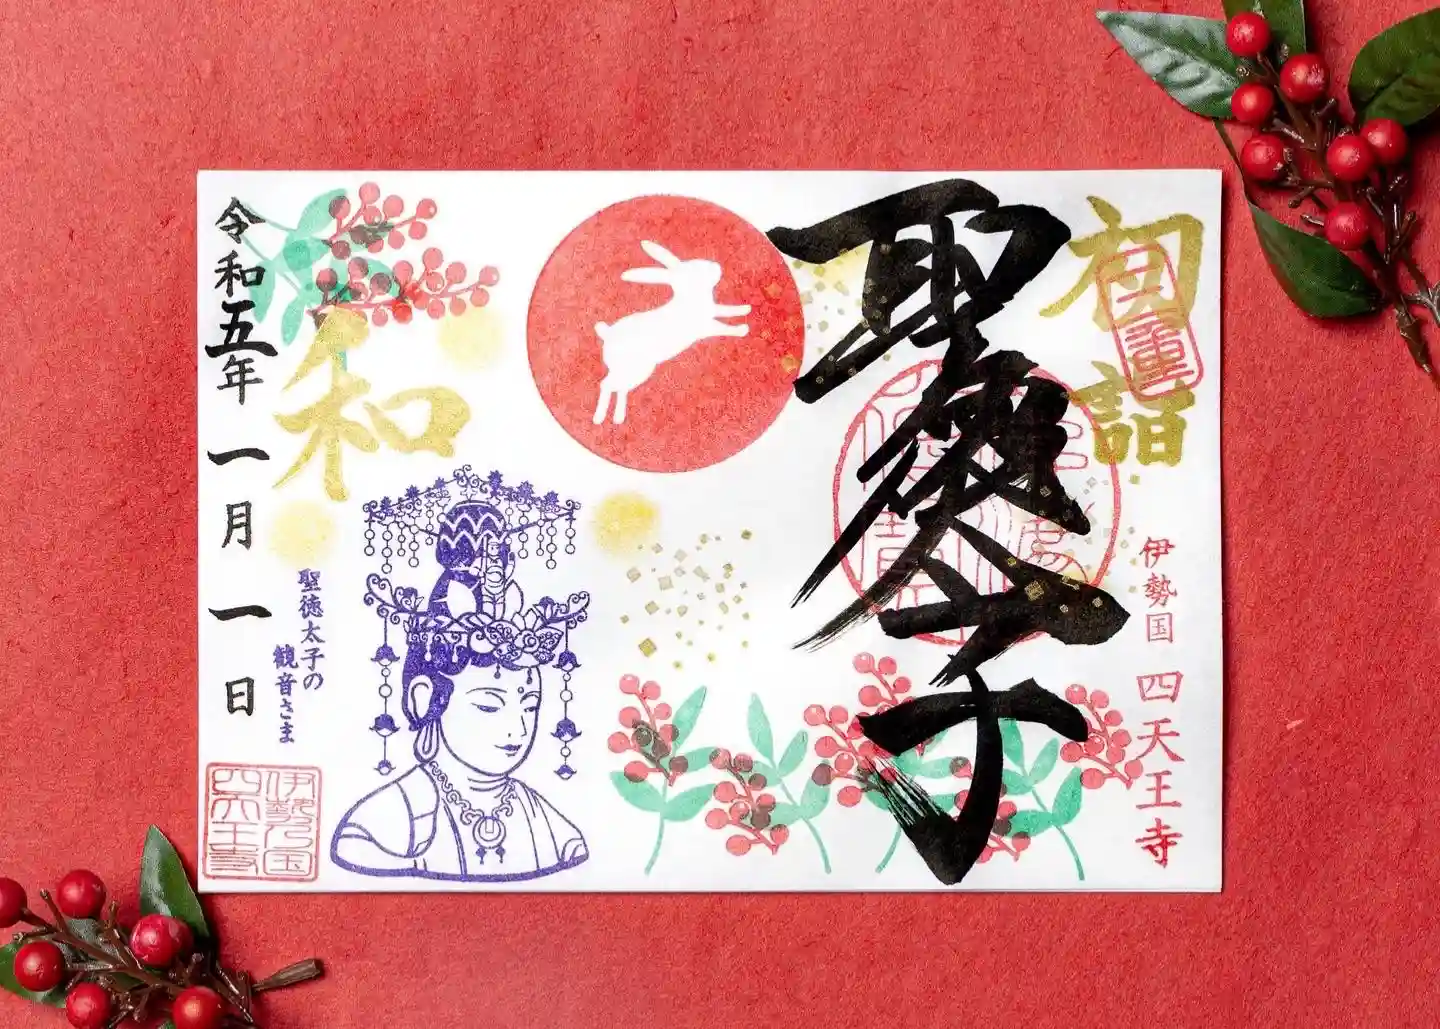 初詣
伊勢国 四天王寺
聖徳太子
和
聖徳太子の
観音さま
令和五年 一月 一日
伊勢乃国
四天王寺